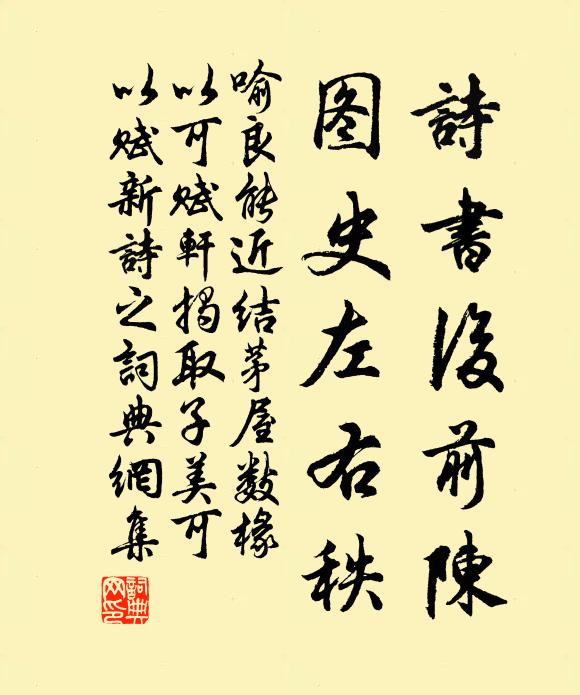 詩書後前陳
图史左右秩
喻良能近结茅屋数椽
以可赋軒揭取子美可
以赋新詩之詞典網集
詞典网印